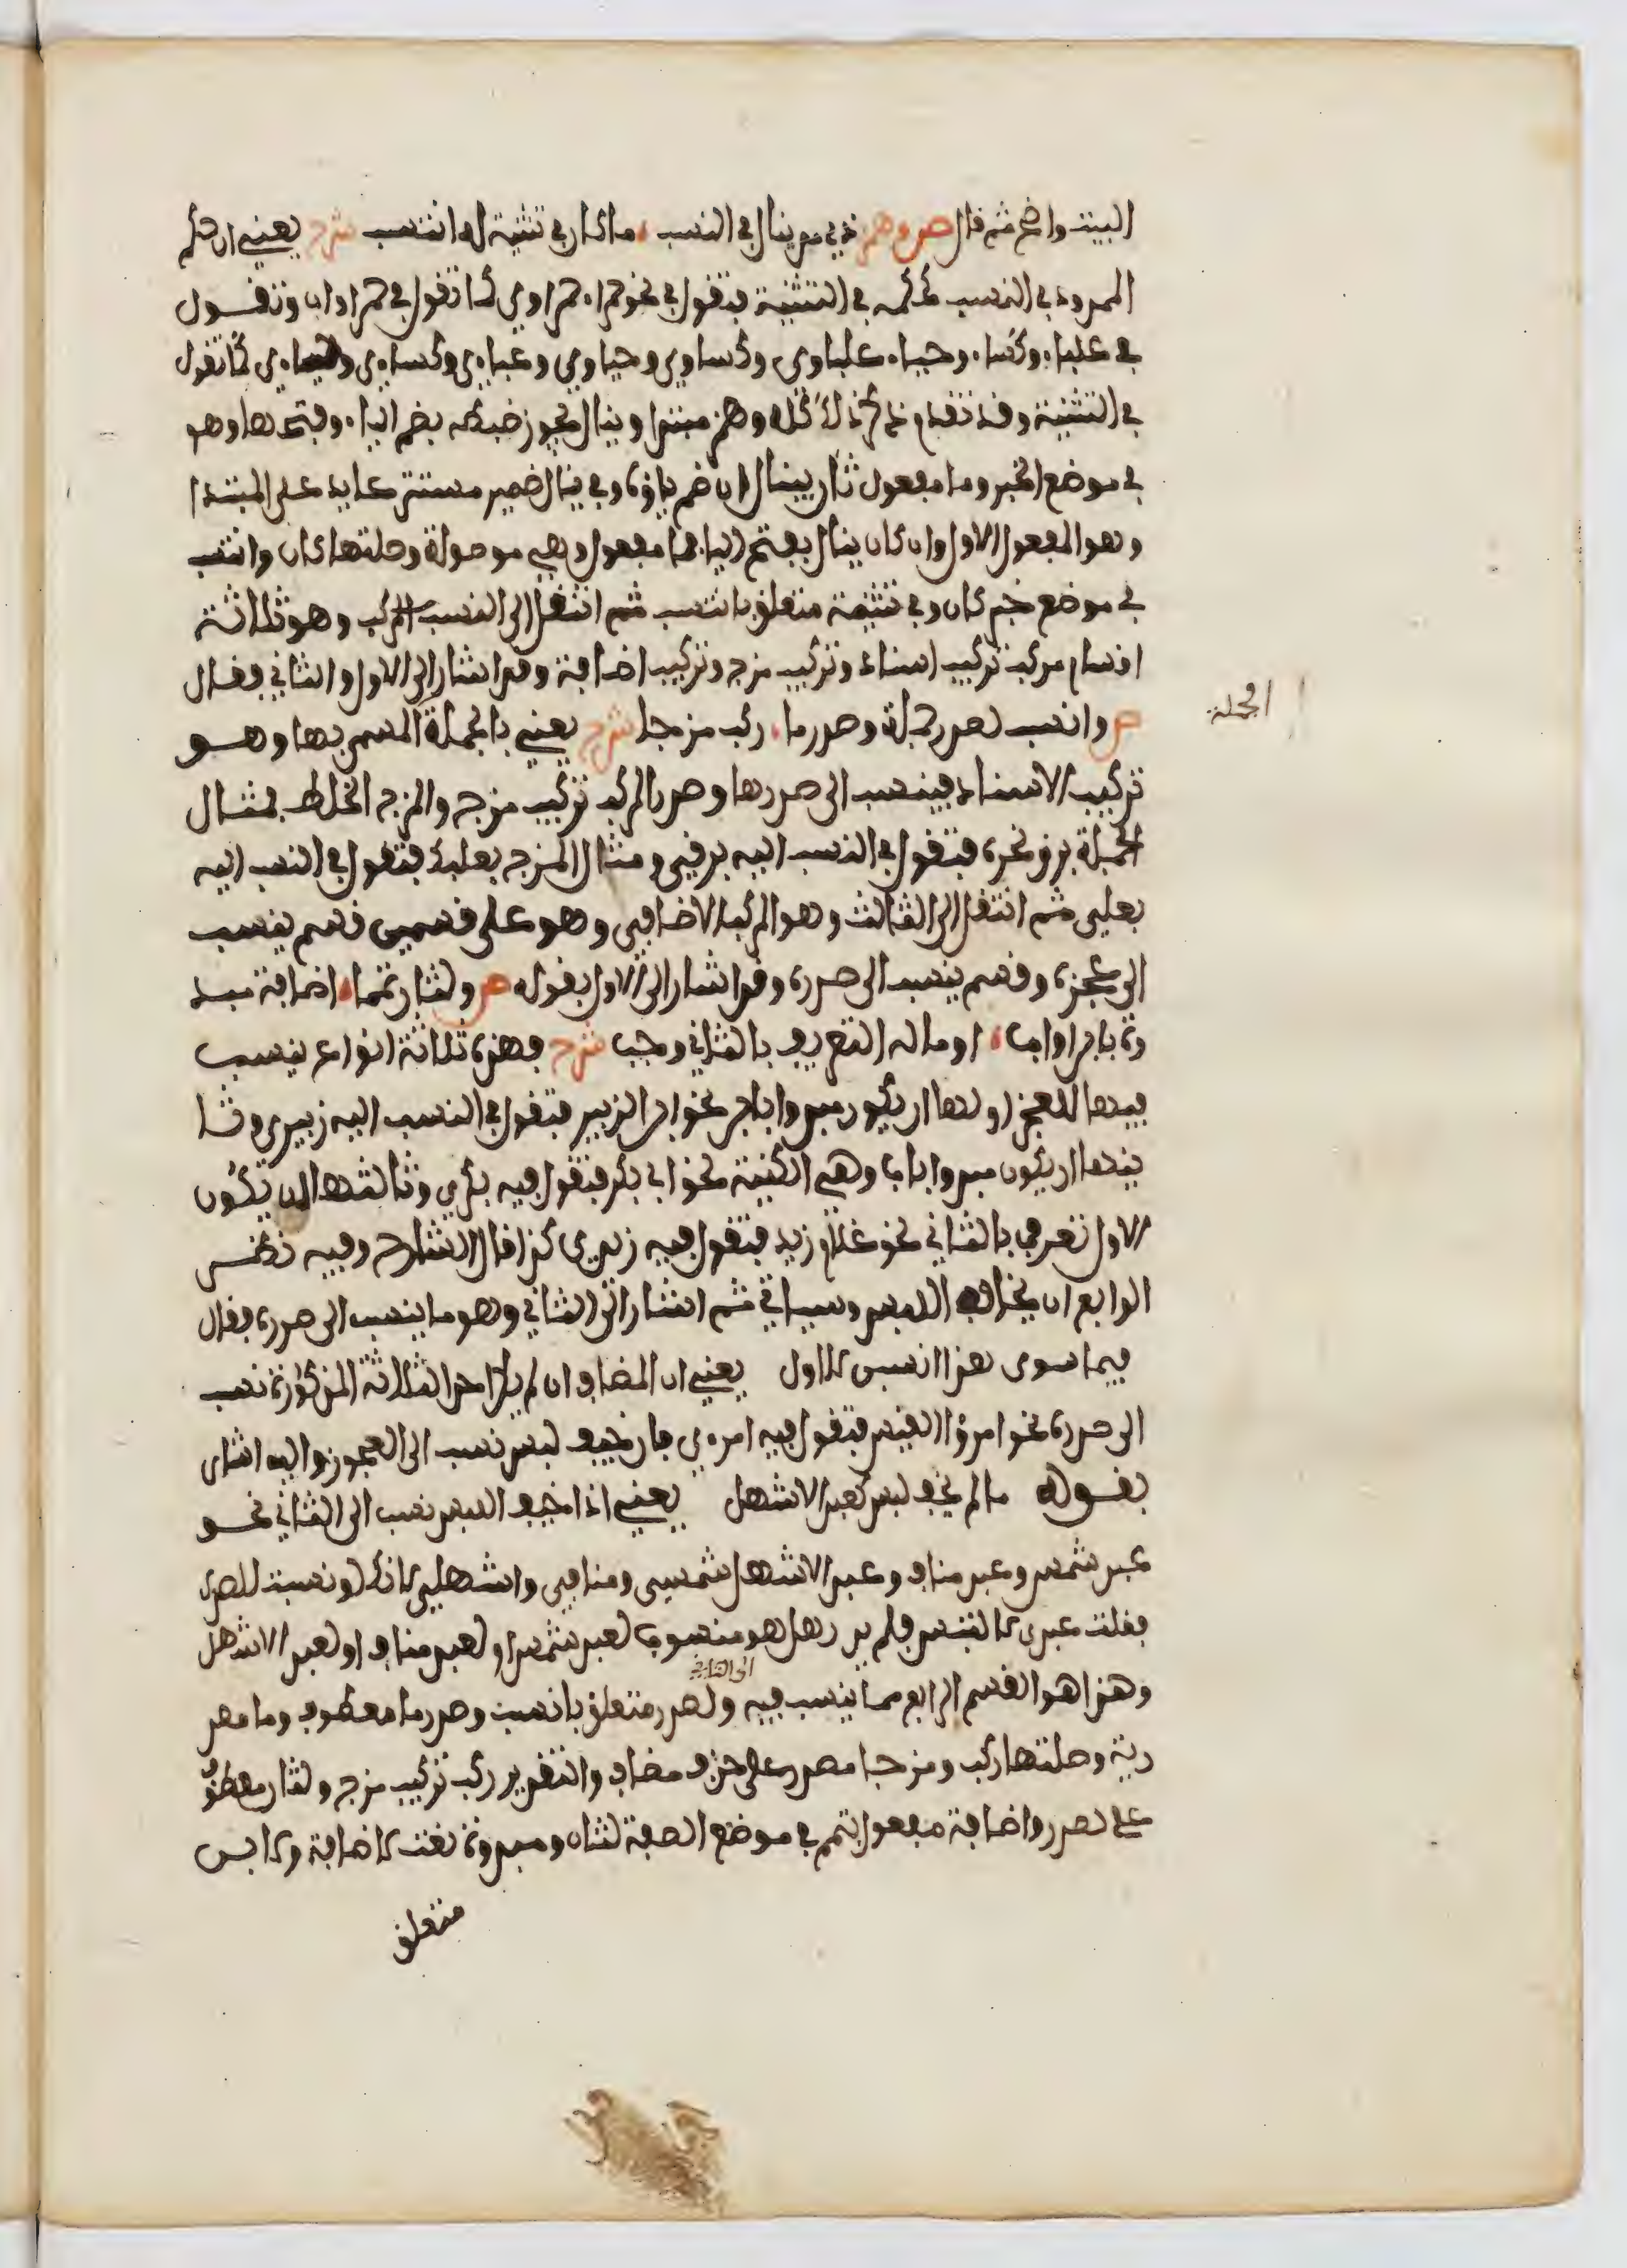 البيت واضح ثم قال ص وهمز ذي مد ينال في النسب ما كان في تثنية له انتسب شرح يعني ان حكم
الممدود في النسب كحكمه في التثنية فتقول في نحو حمراء حمراوي كما تقول في حمراء حمراوان وتقول
في علباء وكساء وحياء علباوي وكساوي وحياوي وعلباءي وكساءي وحياءي كما تقول
في التثنية وقد تقدم ذكر ذلك كله وهمز مبتدا وينال يجوز ضبطه بضم الياء وفتحها وهو
في موضع الخبر وما مفعول ثان بينال ان ضم ياؤه وفي ينال ضمير مستتر عايد على المبتدا
وهو المفعول الاول وان كان ينال بفتح الياء فما مفعول وهي موصولة وصلتها كان وانتسب
في موضع خبر كان وفي تثنية متعلق بانتسب ثم انتقل الى النسب المركب وهو ثلاثة
اقسام مركب تركيب اسناد وتركيب مزج وتركيب اضافة وقد اشار الى الاول والثاني فقال
ص وانسب لصدر جملة وصدر ما ركب مزجا شرح يعني بالجملة المسمى بها وهو
الجملة
تركيب الاسناد فينسب الى صدرها وصدر المركب تركيب مزج والمزج الخلط فمثال
الجملة برق نحره فتقول في النسب اليه برقي ومثال المزج بعلبك فتقول في النسب اليه
بعلي ثم انتقل الى الثالث وهو المركب الاضافي وهو على قسمين قسم ينسب
الى عجزه وقسم ينسب الى صدره وقد اشار الى الاول بقوله ص ولثان تمما اضافة مبد
وة بابن او اب او ما له التعريف بالثاني وجب شرح فهذه ثلاثة انواع ينسب
فيها للعجز اولها ان يكون مبدوا بابن نحو ابن الزبير فتقول في النسب اليه زبيري وثا
نيها ان يكون مبدوا باب وهي الكنية نحو ابي بكر فتقول فيه بكري وثالثها ان يكون
الاول تعرف بالثاني نحو غلام زيد فتقول فيه زيدي كذا قال الشارح وفيه نظر
الرابع ان يخاف اللبس وسياتي ثم اشار الى الثاني وهو ما ينسب الى صدره فقال
فيما سوى هذا انسبن للاول يعني ان المضاف ان لم يكن احد الثلاثة المذكورة نسب
الى صدره نحو امرؤ القيس فتقول فيه امرءي فان خيف لبس نسب الى العجز واليه اشار
بقوله ما لم يخف لبس كعبد الاشهل يعني اذا خيف اللبس نسب الى الثاني نحو
عبد شمس وعبد مناف وعبد الاشهل شمسي ومنافي واشهلي لانك لو نسبت للصدر
فقلت عبدي لالتبس فلم يدر هل هو منسوب لعبد شمس او لعبد مناف او لعبد الاشهل
وهذا هو القسم الرابع مما ينسب فيه الى الثاني ولصدر متعلق بانسب وصدر ما معطوف وما مصد
رية وصلتها ركب ومزجا مصدر على حذف مضاف والتقدير ركب تركيب مزج ولثان معطوف
على لصدر واضافة مفعول بتمم في موضع الصفة لثان ومبدوة نعت لاضافة وبابن
متعلق